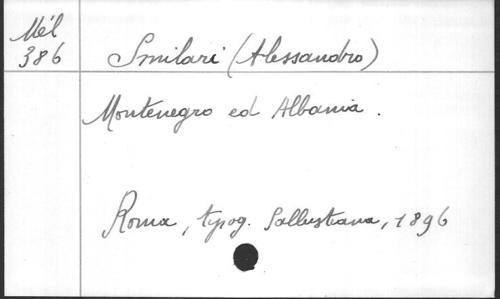 Mél
386
Smilari (Alessandro)
Montenegro ed Albania.
Roma, tipog. Sallustiana, 1896